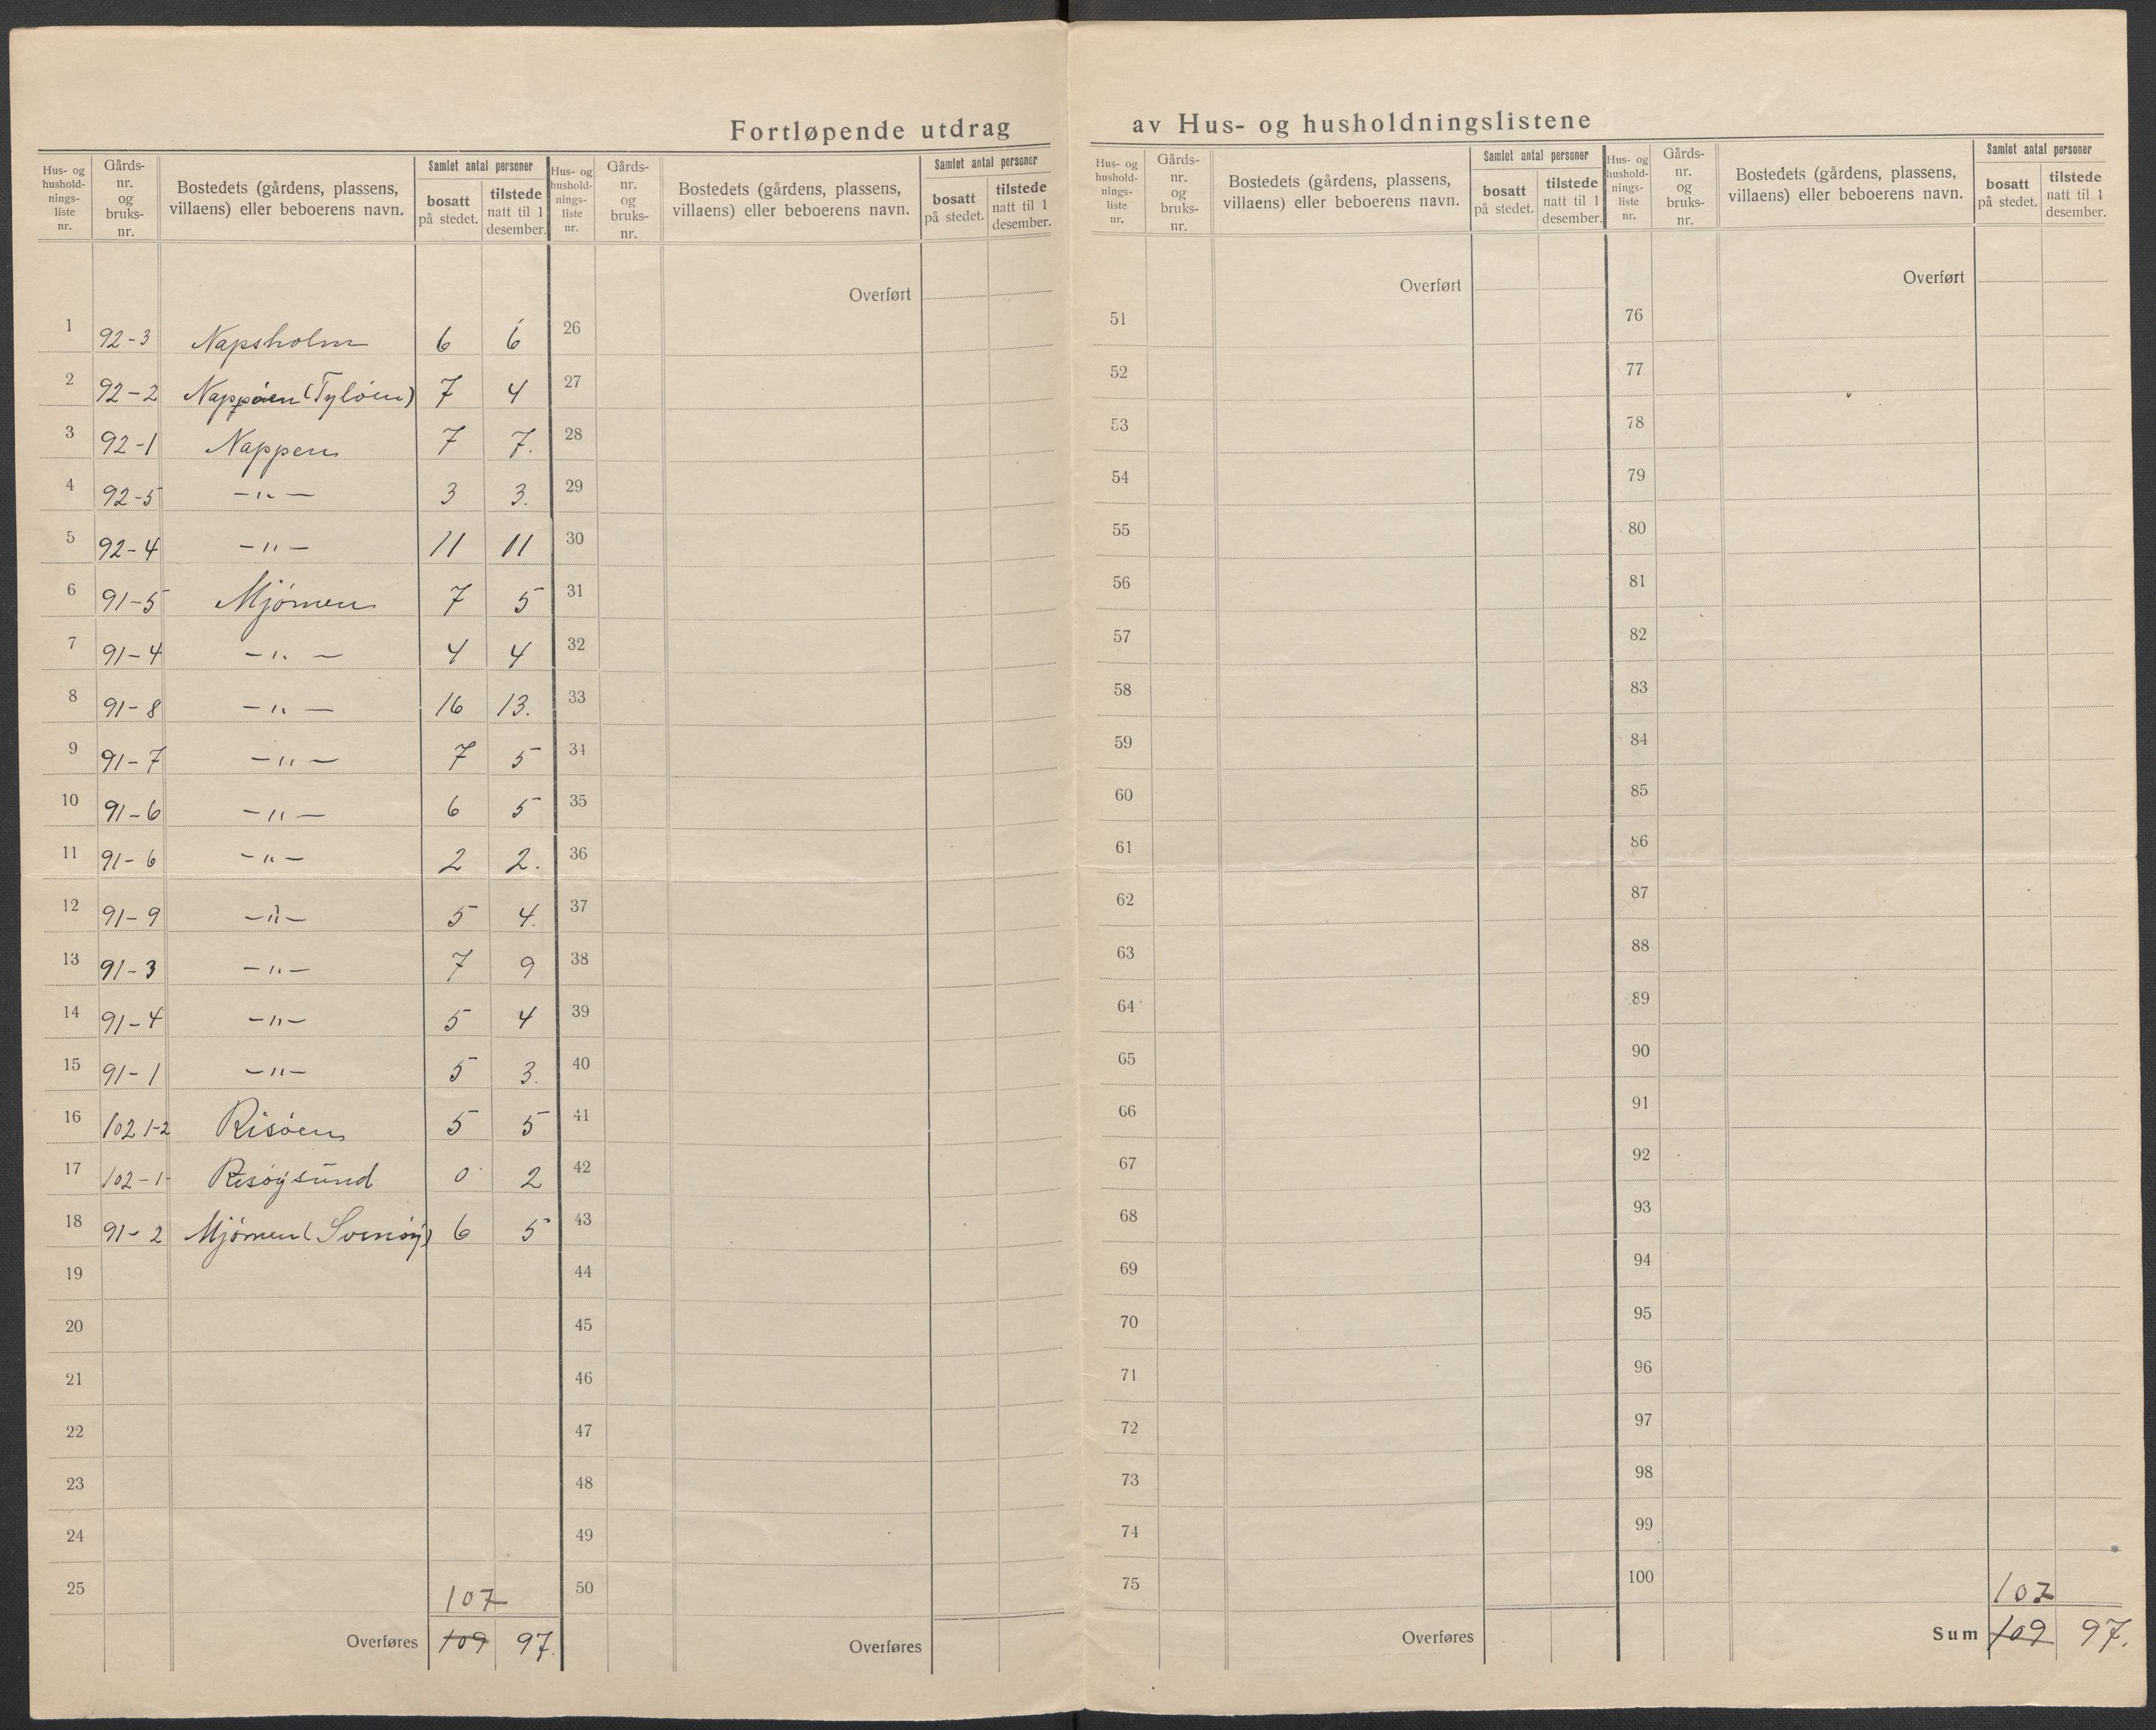 Fortløpende utdrag av Hus- og husholdningslistene
Hus- og hushold-nings-liste nr. | Gårds-nr. og bruks-nr. | Bostedets (gårdens, plassens, villaens) eller beboerens navn. | Samlet antal personer | bosatt på stedet. | tilstede natt til 1 desember.
Hus- og hushold-nings-liste nr. | Gårds-nr. og bruks-nr. | Bostedets (gårdens, plassens, villaens) eller beboerens navn. | Samlet antal personer | bosatt på stedet. | tilstede natt til 1 desember.
Hus- og hushold-nings-liste nr. | Gårds-nr. og bruks-nr. | Bostedets (gårdens, plassens, villaens) eller beboerens navn. | Samlet antal personer | bosatt på stedet. | tilstede natt til 1 desember.
Hus- og hushold-nings-liste nr. | Gårds-nr. og bruks-nr. | Bostedets (gårdens, plassens, villaens) eller beboerens navn. | Samlet antal personer | bosatt på stedet. | tilstede natt til 1 desember.
1 92-3 Napsholm 6 6
2 92-2 Nappøen (Tyløen) 7 4
3 92-1 Nappen 7 7.
4 92-5 -"- 3 3.
5 92-4 -"- 11 11
6 91-5 Mjömen 7 5
7 91-4 -"- 4 4
8 91-8 -"- 16 13.
9 91-7 -"- 7 5
10 91-6 -"- 6 5
11 91-6 -"- 2 2.
12 91-9 -"- 5 4.
13 91-3 -"- 7 9
14 91-4 -"- 5 4
15 91-1 -"- 5 3.
16 102 1-2 Risöen 5 5
17 102-1 Risöysund 0 2
18 91-2 Mjömen (Svenöy) 6 5
19
20
21
22
23
24
25
107
Overføres 109 97.
Overført
26
27
28
29
30
31
32
33
34
35
36
37
38
39
40
41
42
43
44
45
46
47
48
49
50
Overføres
Overført
51
52
53
54
55
56
57
58
59
60
61
62
63
64
65
66
67
68
69
70
71
72
73
74
75
Overføres
Overført
76
77
78
79
80
81
82
83
84
85
86
87
88
89
90
91
92
93
94
95
96
97
98
99
100
107
Sum 109 97.